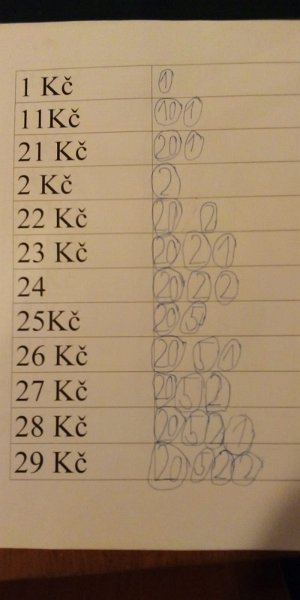 1 Kč 1
11Kč 10 1
21 Kč 20 1
2 Kč 2
22 Kč 20 2
23 Kč 20 2 1
24 20 2 2
25Kč 20 5
26 Kč 20 5 1
27 Kč 20 5 2
28 Kč 20 5 2 1
29 Kč 20 5 2 2